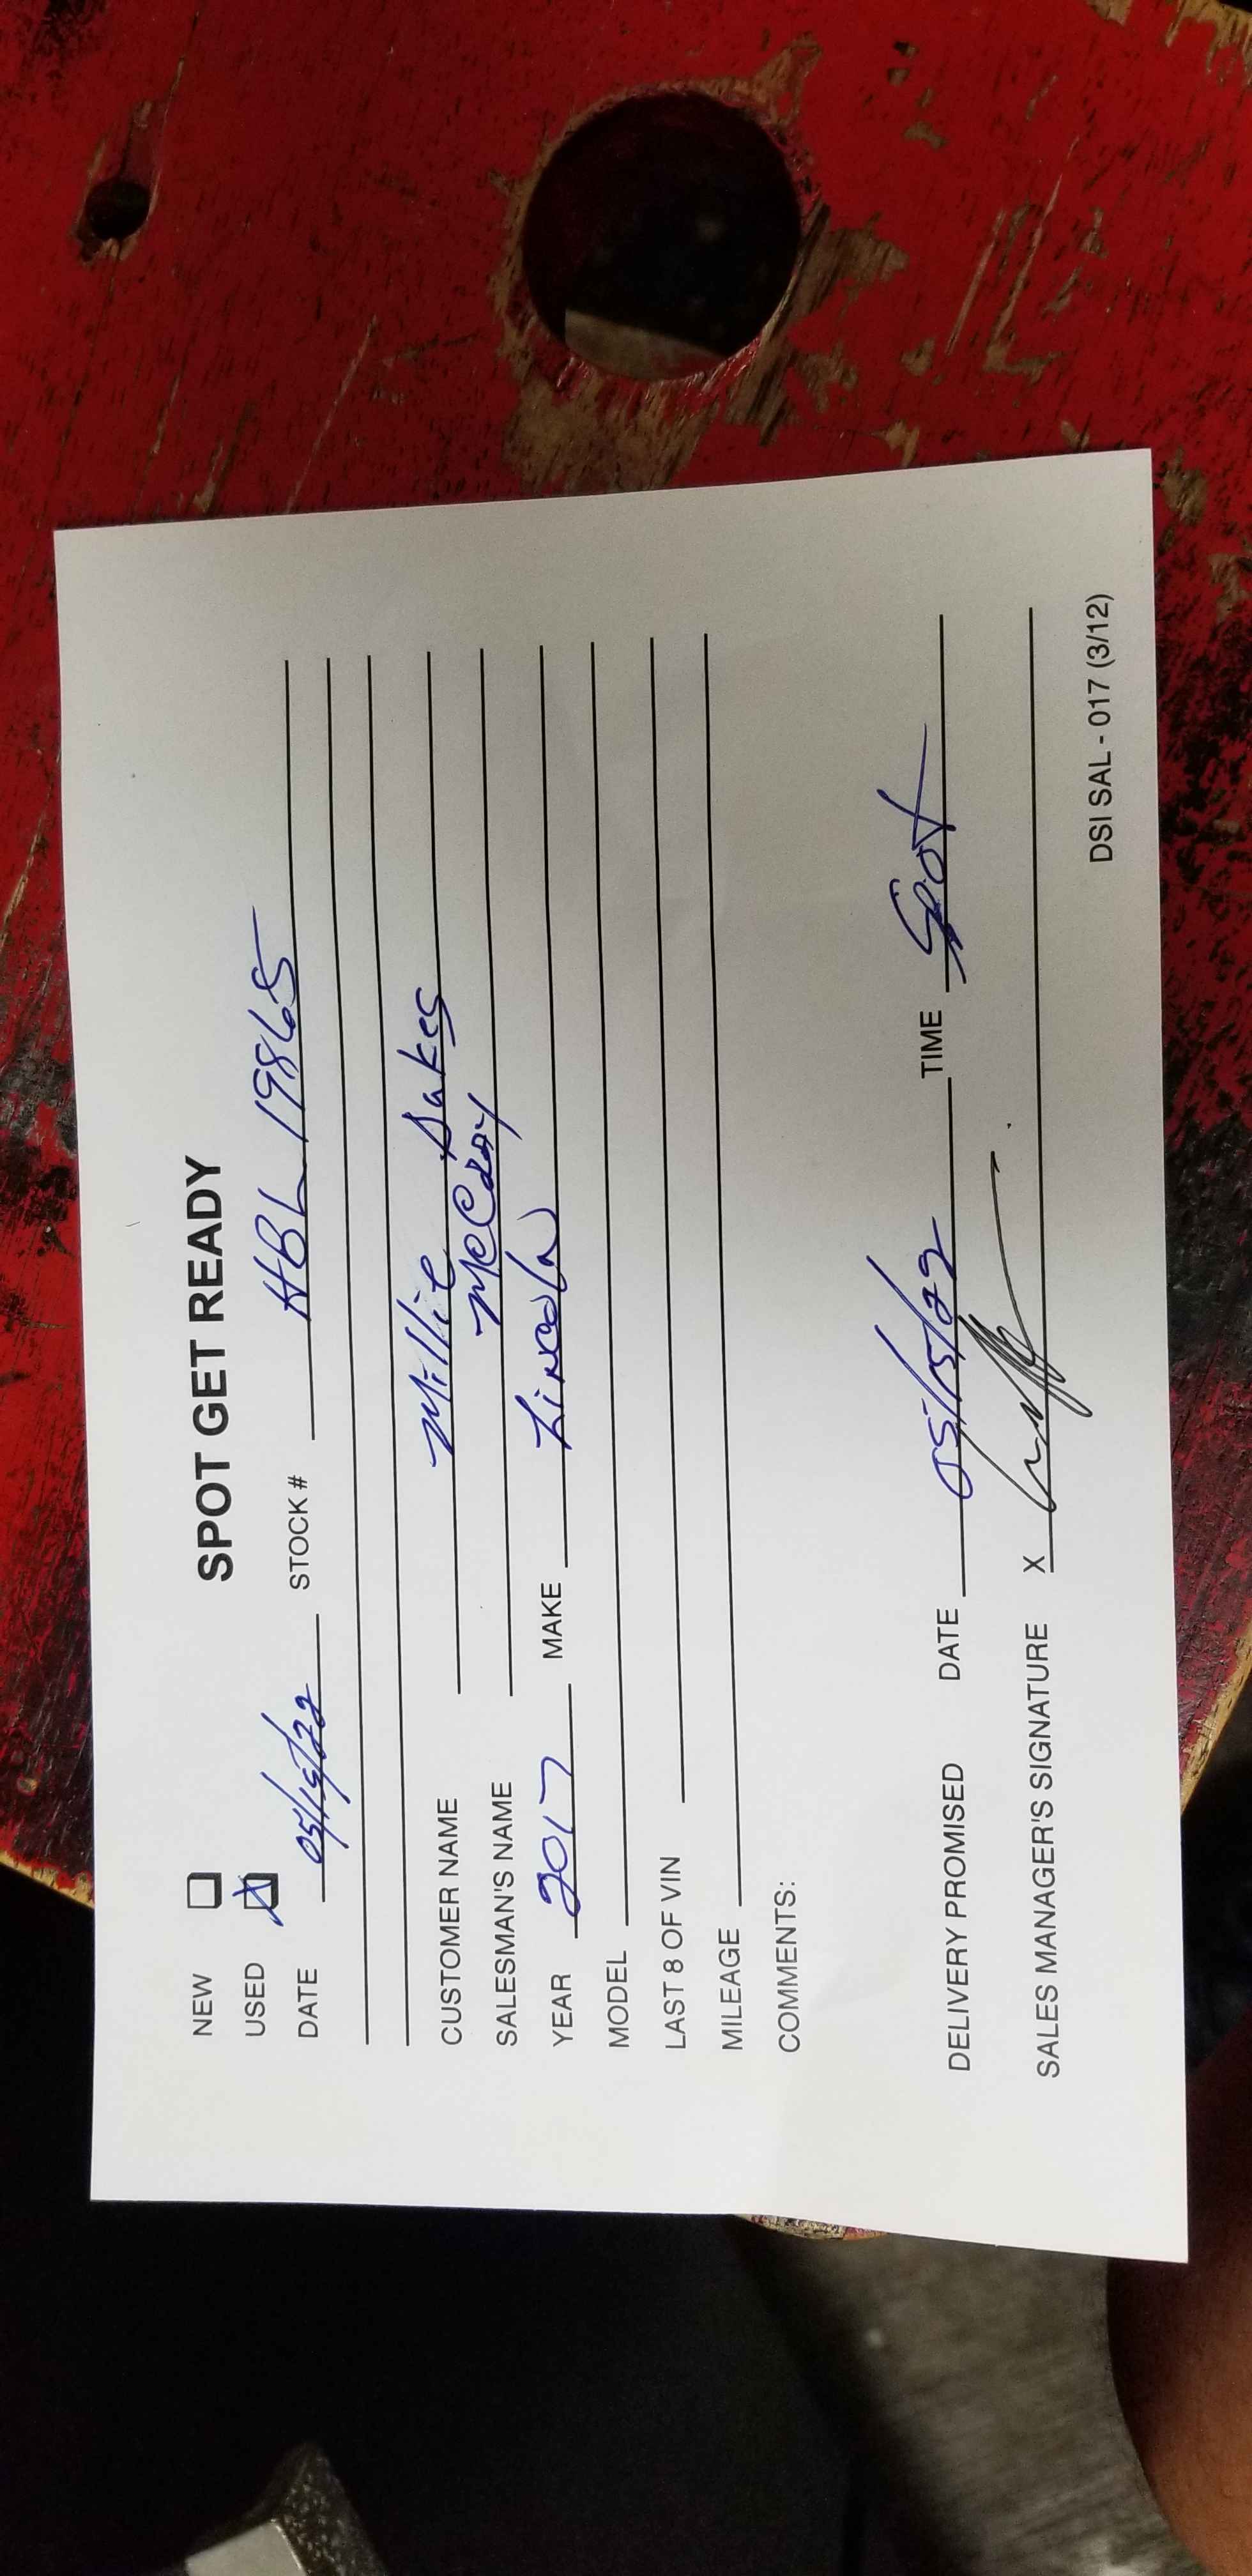 SPOT GET READY
NEW
USED X
DATE 05/15/22 STOCK # HBL 19865
CUSTOMER NAME Millie Sakes
SALESMAN'S NAME McCray
YEAR 2017 MAKE Lincoln
MODEL
LAST 8 OF VIN
MILEAGE
COMMENTS:
DELIVERY PROMISED DATE 05/15/22 TIME Spot
SALES MANAGER'S SIGNATURE X
DSI SAL - 017 (3/12)